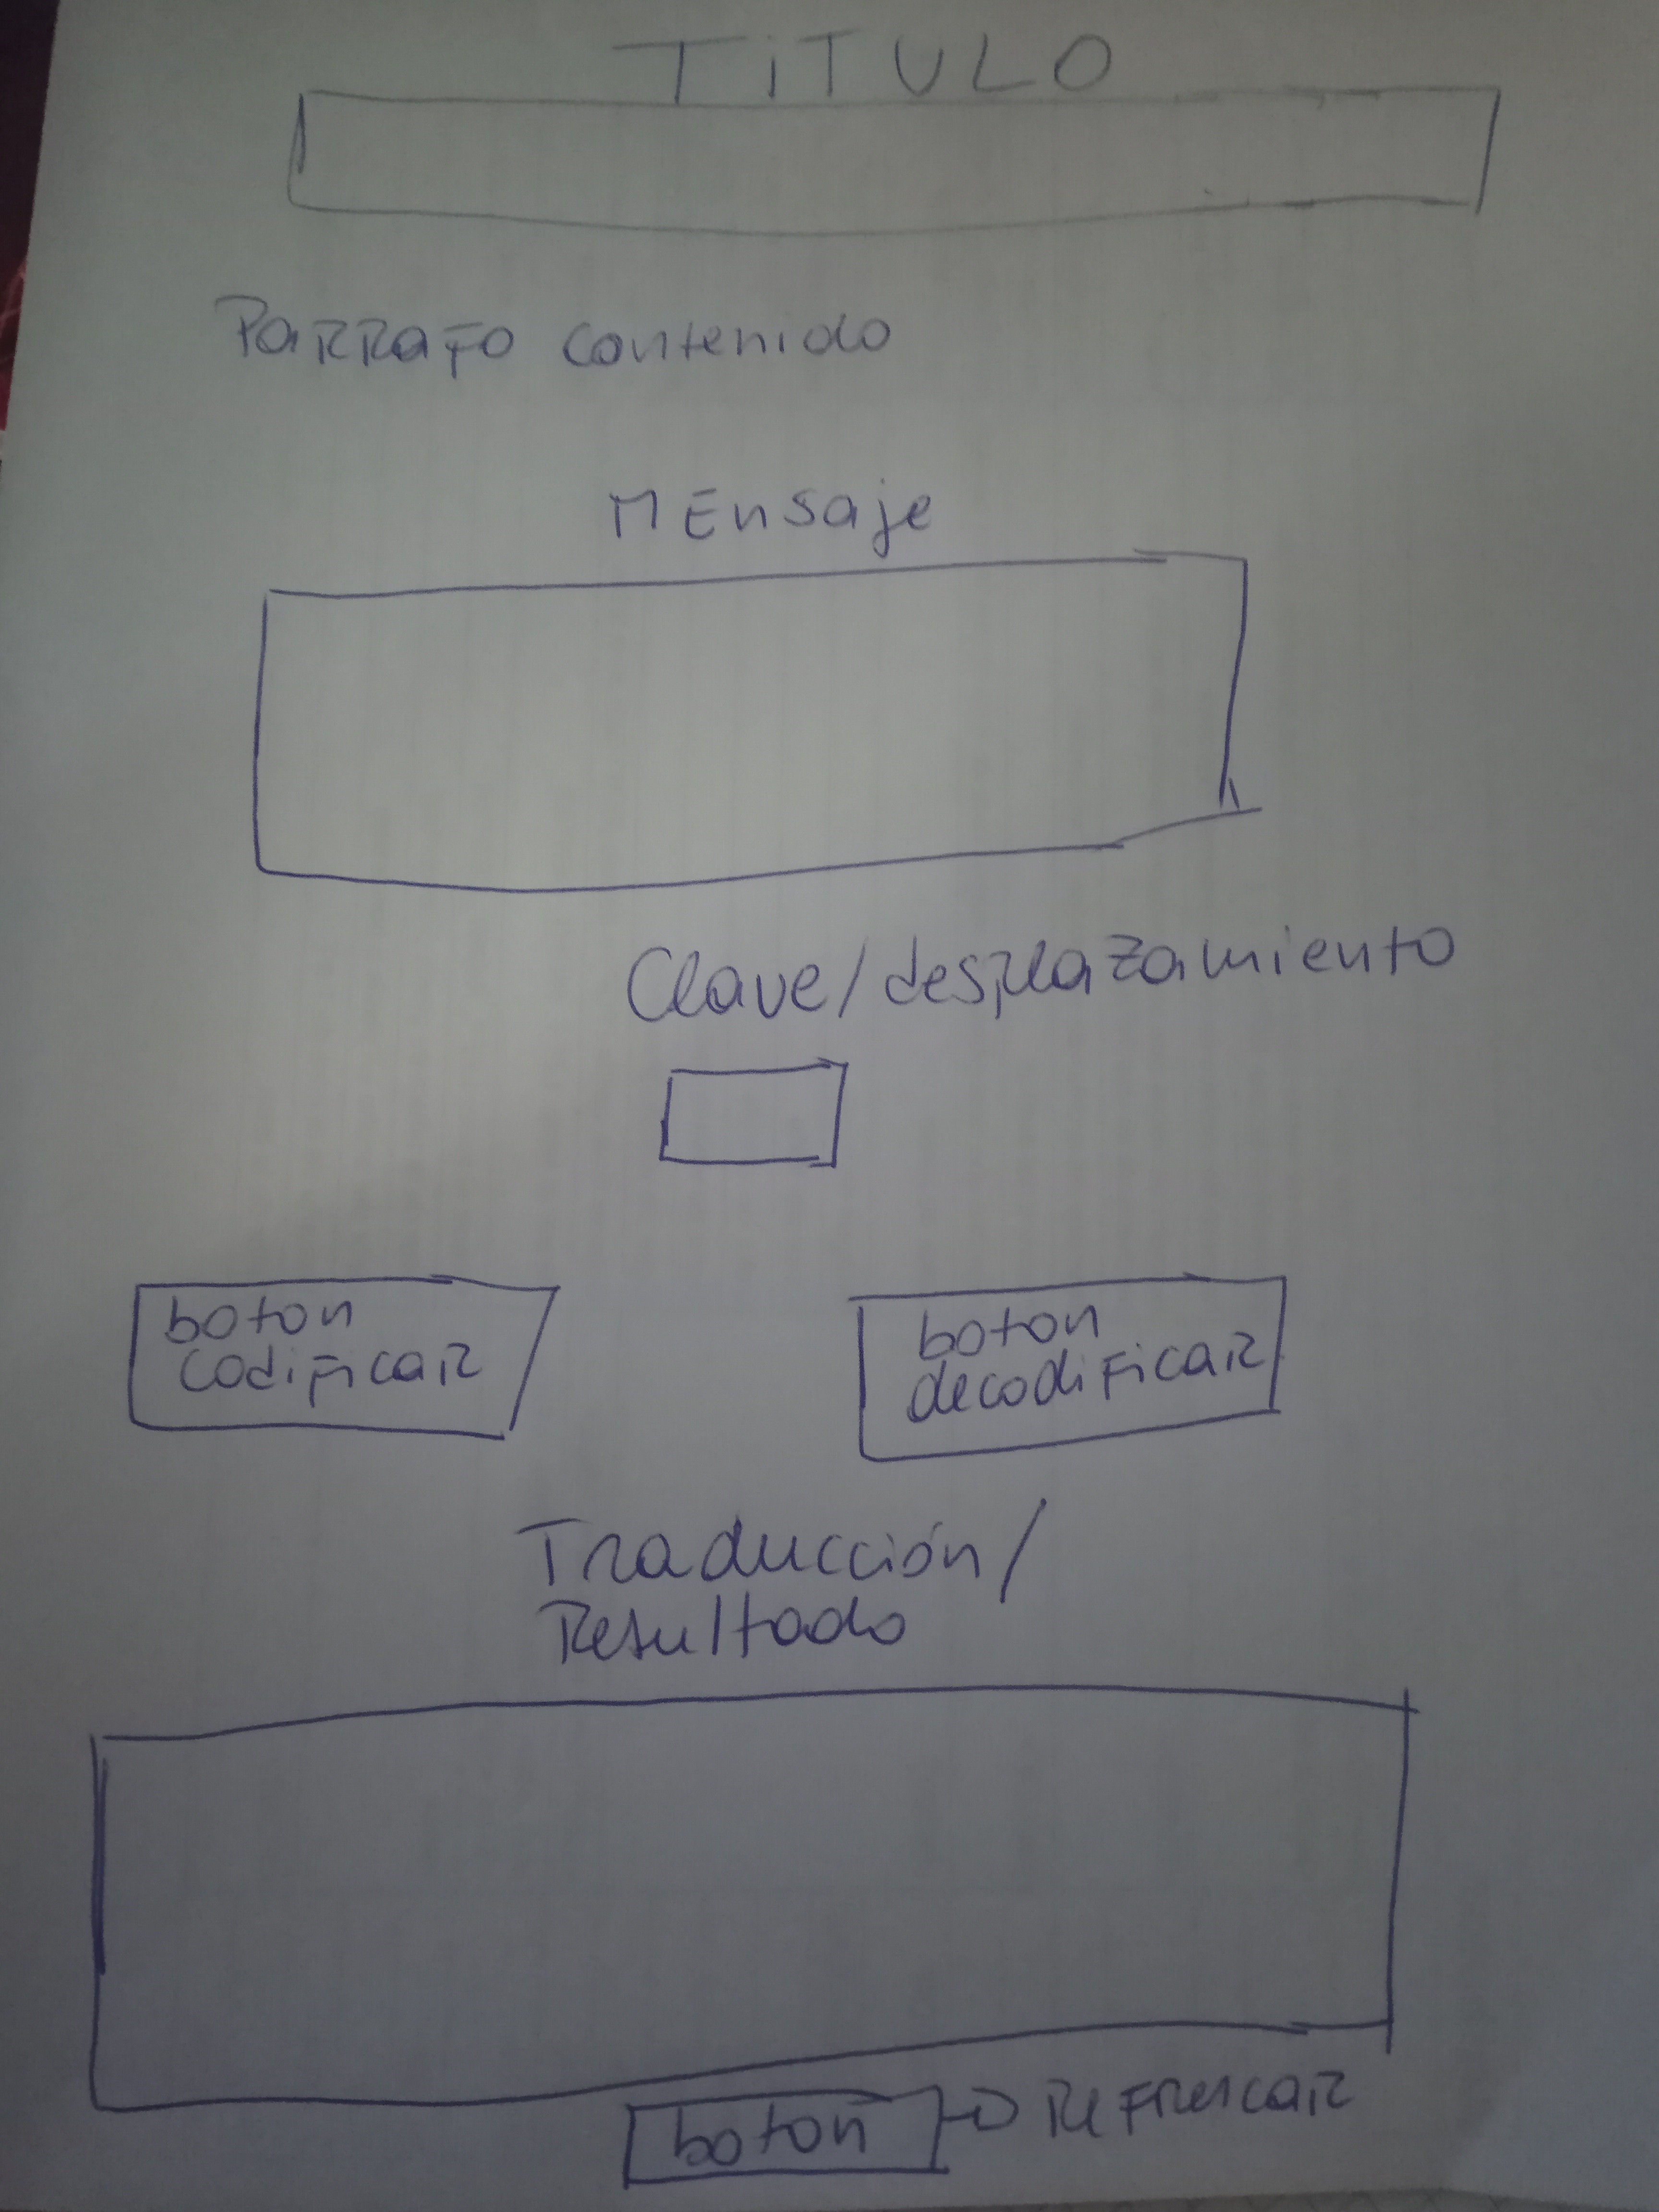 TITULO
Parrafo contenido
Mensaje
Clave/desplazamiento
boton
codificar
boton
decodificar
Traducción/
Resultado
boton → Refrescar